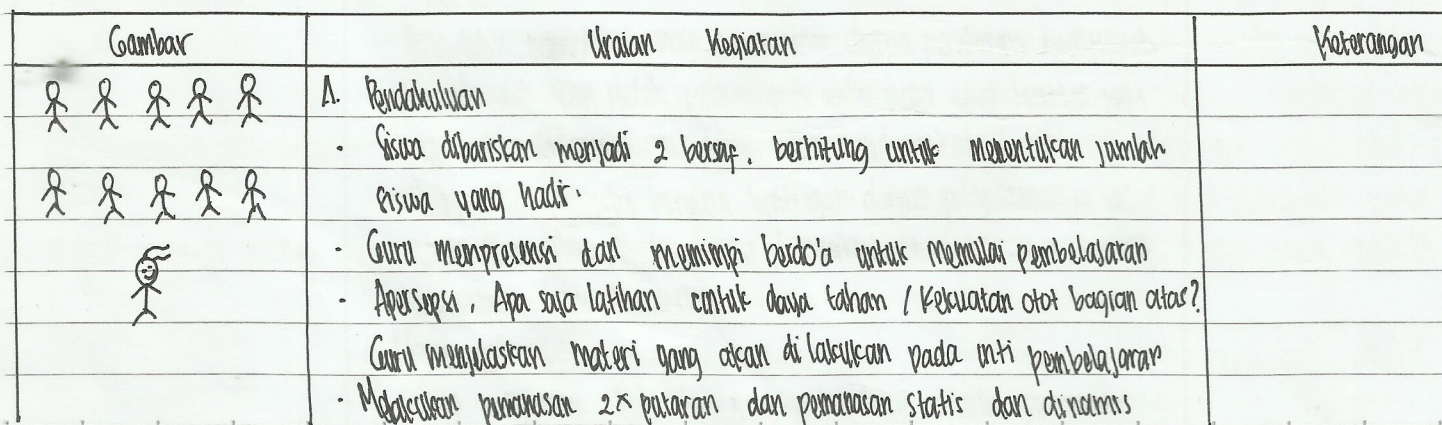 Gambar Uraian Kegiatan Keterangan
A. Pendahuluan
- Siswa dibariskan menjadi 2 bersaf, berhitung untuk menentukan jumlah
siswa yang hadir.
- Guru mempresensi dan memimpi berdo'a untuk memulai pembelajaran
- Apersepsi, Apa saja latihan untuk daya tahan / kekuatan otot bagian atas?
Guru menjelaskan materi yang akan di lakukan pada inti pembelajaran
- Melakukan pemanasan 2x putaran dan pemanasan statis dan dinamis